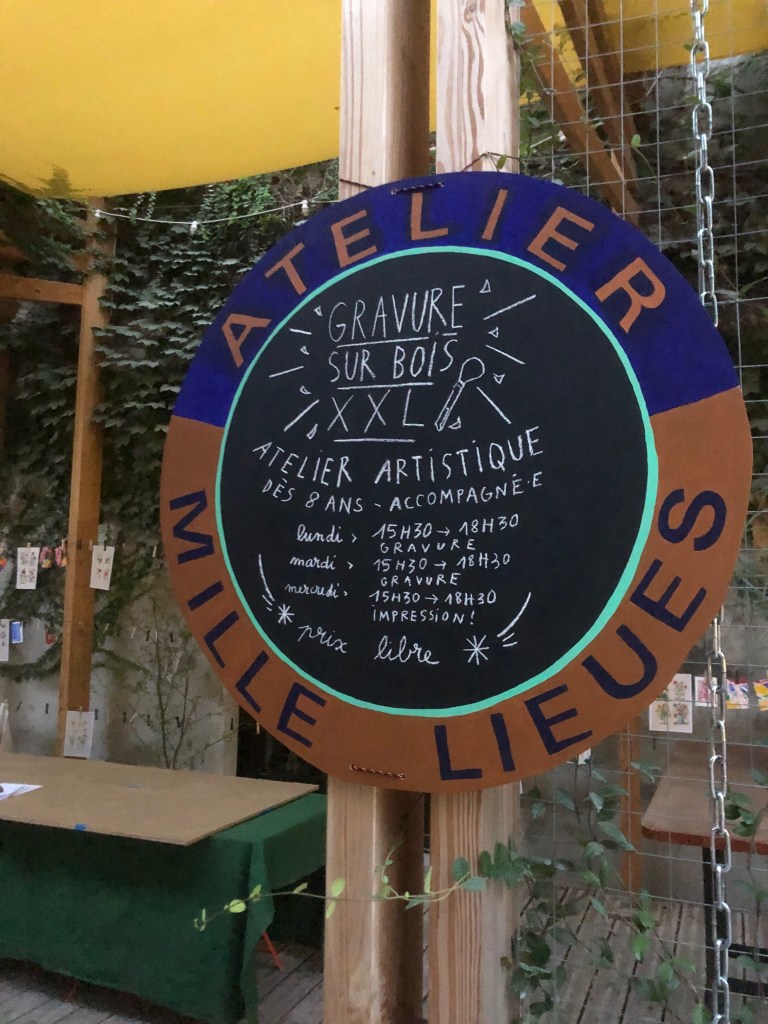 ATELIER
GRAVURE
SUR BOIS
XXL
ATELIER ARTISTIQUE
DÈS 8 ANS - ACCOMPAGNÉ·E
lundi > 15H30 → 18H30
GRAVURE
mardi > 15H30 → 18H30
GRAVURE
mercredi > 15H30 → 18H30
IMPRESSION!
prix libre
MILLE LIEUES